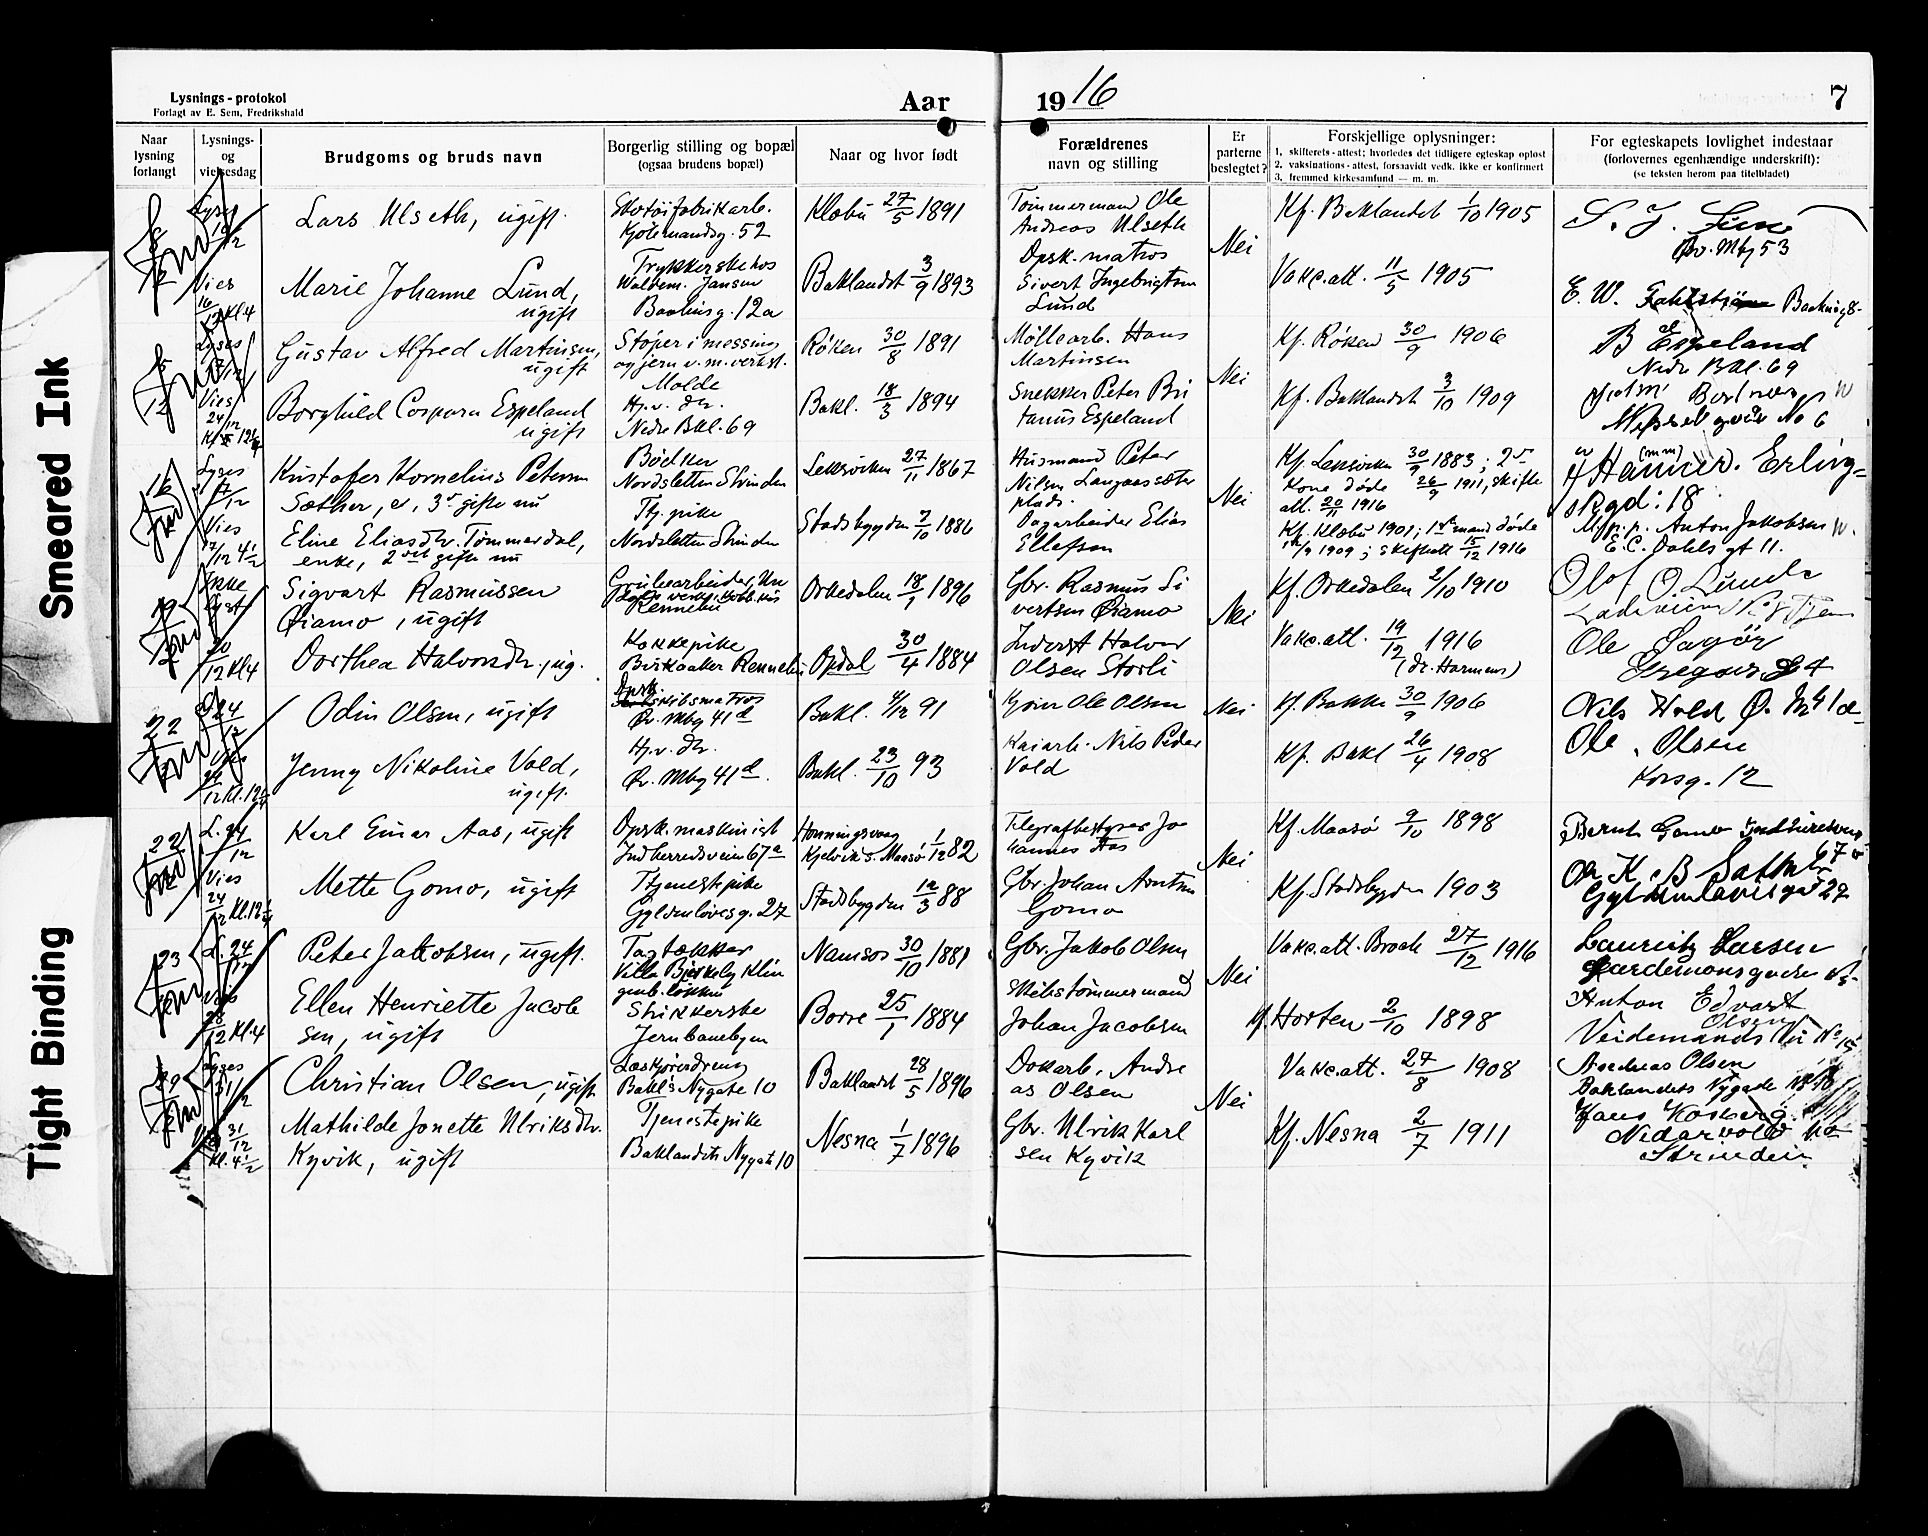 Smeared Ink
Tight Binding
Lysnings-protokol
Forlagt av E. Sem, Fredrikshald
Aar 1916
7
Naar lysning forlangt
Lysnings- og vielsesdag
Brudgoms og bruds navn
Borgerlig stilling og bopæl
(ogsaa brudens bopæl)
Naar og hvor født
Forældrenes
navn og stilling
Er parterne beslegtet?
Forskjellige oplysninger:
1. skifterets-attest; hvorledes det tidligere egteskap opløst
2. vaksinations-attest, forsaavidt vedk. ikke er konfirmert
3. fremmed kirkesamfund — m. m.
For egteskapets lovlighet indestaar
(forlovernes egenhændige underskrift):
(se teksten herom paa titelbladet)
Lars Ulseth, ugift.
Skotøifabrikarb.
52
Klæbu 27/5 1891
Tømmermand Ole
Andreas Ulseth
Nei
Kf. Baklandet 1/10 1905
Øv. Mbg 53
Vies
Kl. 4
Marie Johanne Lund,
ugift
Trykkerske hos
Waldem. Jansen
12a
Baklandet 3/9 1893
Opsk. matros
Sivert Ingebrigtsen
Lund
Vakc.att. 11/5 1905
E. W.
Lyses
Gustav Alfred Martinsen,
ugift
Støper i messing
og jern v. m. verkst.
Molde
Røken 30/8 1891
Møllearb. Hans
Martinsen
Nei
Kf. Røken 30/9 1906
B Espeland
Nedr Bkl. 69
Vies
24/12
Borghild Caspara Espeland
ugift
Hj.v. Dtr.
Nedre Bkl. 69
Bakl. 18/3 1894
Snekker Peter Bri
tanus Espeland
Kf. Baklandet 3/10 1909
No 6
16
Lyses
17/12
Kristofer Kornelius Petersen
Sæther, e, 3. gifte nu
Bødker
Nordsletten Strinden
Leksviken 27/11 1867
Husmand Peter
Nilsen Langaassæter
plads.
Nei
Kf. Leksviken 30/9 1883; 2
Kone døde 26/9 1911, skifte
att. 20/11 1916
Hammer. Erling-
sgd: 18
Vies
17/12 4 1/2
Eline Eliasdtr. Tømmerdal,
enke, 2 gifte nu
Tj. pike
Nordsletten Strinden
Stadsbygden 7/10 1886
Dagarbeider Elias
Ellefsen
Kf. Klæbu 1901; 1ste mand døde
1909; skifteatt 15/12 1916
Anton Jakobsen
E. C. Dahls gt 11.
19
Ikke
lyst
Sigvart Rasmussen
Øiamo, ugift
Grubearbeider,
Rennebu
Orkedalen 18/1 1896
Gbr. Rasmus Si
vertsen Øiamo
Nei
Kf. Orkedalen 2/10 1910
Olof O. Lunde
20/12 Kl 4
Dorthea Halvorsdtr. ug.
Kokkepike
Birkaaker Rennebu
Opdal 30/4 1884
Inderst Halvor
Olsen Storli
Vakc.att. 19/12 1916
(dr. Harmens)
Ole
4
22
24/12
Odin Olsen, ugift
Opsk.
Øv. Mbg 41d
Bakl. 4/12 91
Kjører Ole Olsen
Nei
Kf. Bakke 30/9 1906
Nils Wold Ø. M 41d
Jenny Nikoline Vold,
ugift.
Hj.v. Dtr.
Øv. Mbg 41d.
Bakl. 23/10 93
Kaiarb. Nils Peder
Vold
Kf. Bakl 26/4 1908
Ole Olsen
Korsg. 12
22
L. 24/12
Karl Einar Aas, ugift
Opsk. maskinist
Indherredsveien 67a
Honningsvaag
Kjelvik s. Maasø 1/12 82
Telegrafbestyrer Jo
hannes Aas
Nei
Kf. Maasø 9/10 1898
Bernt Gomo
67 a
Vies
24/12 Kl. 12
Mette Gomo, ugift
Tjenestpike
Gyldenløvesg. 27
Stadsbygden 12/3 88
Gbr. Johan Arntsen
Gomo
Kf. Stadsbygden 1903
Gyldenløvesgt 27
23
L. 24
Peter Jakobsen, ugift.
Tagtækker
Namsos 30/10 1881
Gbr. Jakob Olsen
Nei
Vakc.att. Broch 27/12 1916
Lauritz Larsen
28/12 Kl. 4
Ellen Henriette Jacob
sen, ugift
Strikkerske
Jernbanebyen
Borre 25/1 1884
Skibstømmermand
Johan Jacobsen
Kf. Horten 2/10 1898
Anton Edvart
Olsen
29
Lyses
31/12
Christian Olsen, ugift
Læskjøredreng
Bakl.s Nygate 10
Baklandet 28/5 1896
Dokarb. Andre
as Olsen
Nei
Vakc.att. 27/8 1908
Andreas Olsen
Baklandets Nygade
31/12
Kl. 4 1/2
Mathilde Jonette Ulriksdtr.
Kyvik, ugift
Tjenestepike
Baklandets Nygate 10
Nesna 1/7 1896
Gbr. Ulrik Karl
sen Kyvik
Kf. Nesna 2/7 1911
Hans
Nidarvold
Strinden